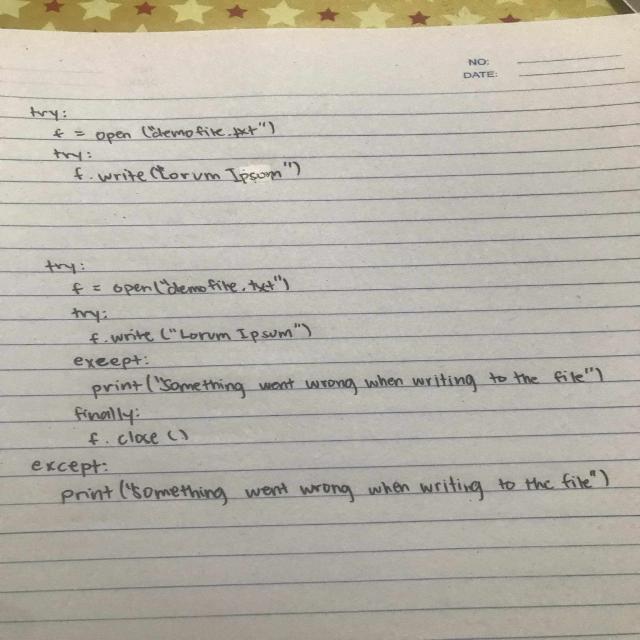 NO:
DATE:
try:
f = open ("demofile.txt")
try:
f.write("Lorum Ipsum")
try:
f = open("demofile.txt")
try:
f.write ("Lorum Ipsum")
except:
print("Something went wrong when writing to the file")
finally:
f. close ()
except:
print ("Something went wrong when writing to the file")